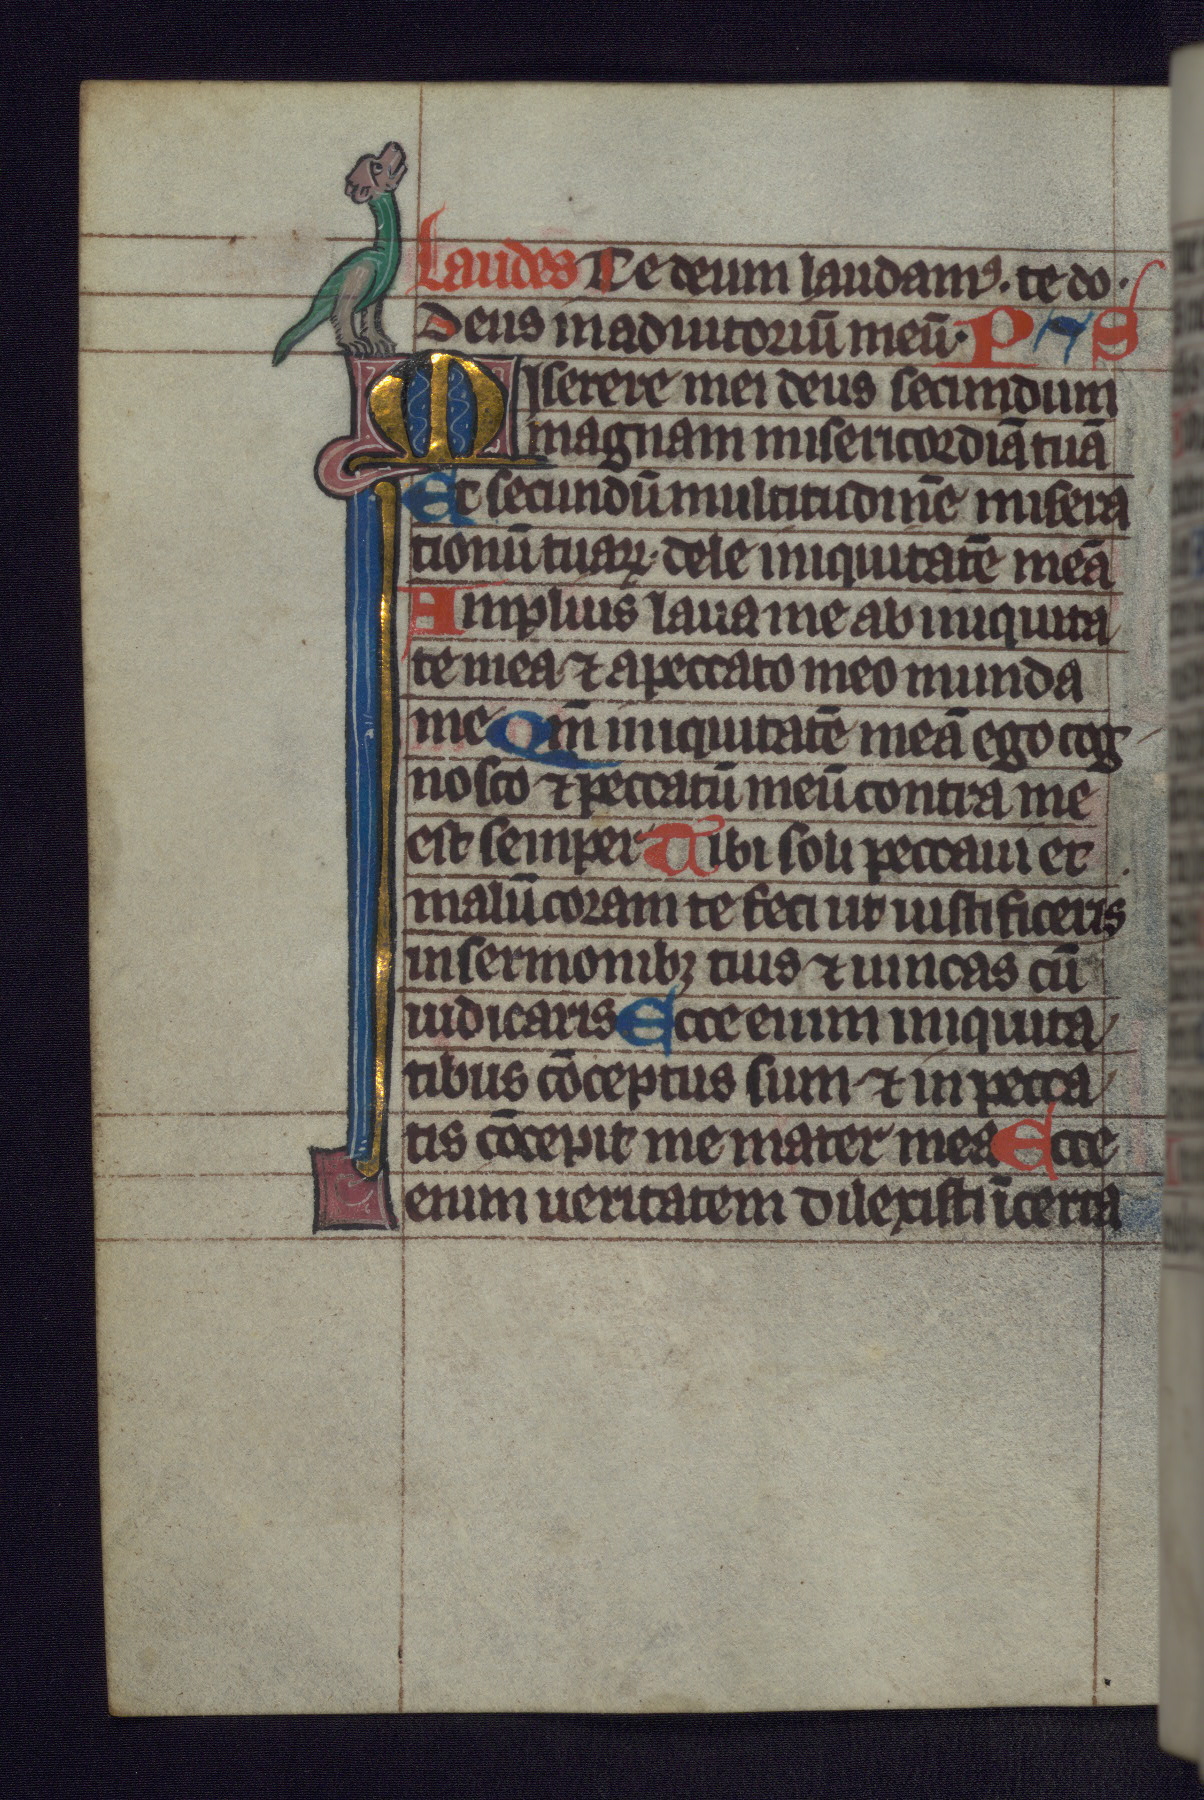 Laudes Te deum laudamꝰ. te do.
Deus in adiutoriū meū. PS
Miserere mei deus secundum
magnam misericordiā tuā
Et secundū multitudinē misera
tionū tuaꝝ. dele iniquitatē meā
Amplius laua me ab iniquita
te mea ⁊ a peccato meo munda
me Qm̄ iniquitatē meā ego cog
nosco ⁊ peccatū meū contra me
est semper Tibi soli peccaui et
malū coram te feci ut iustificeris
in sermonibꝫ tuis ⁊ uincas cū
iudicaris Ecce enim iniquita
tibus cōceptus sum ⁊ in pecca
tis cōcepit me mater mea Ecce
enim ueritatem dilexisti īcerta